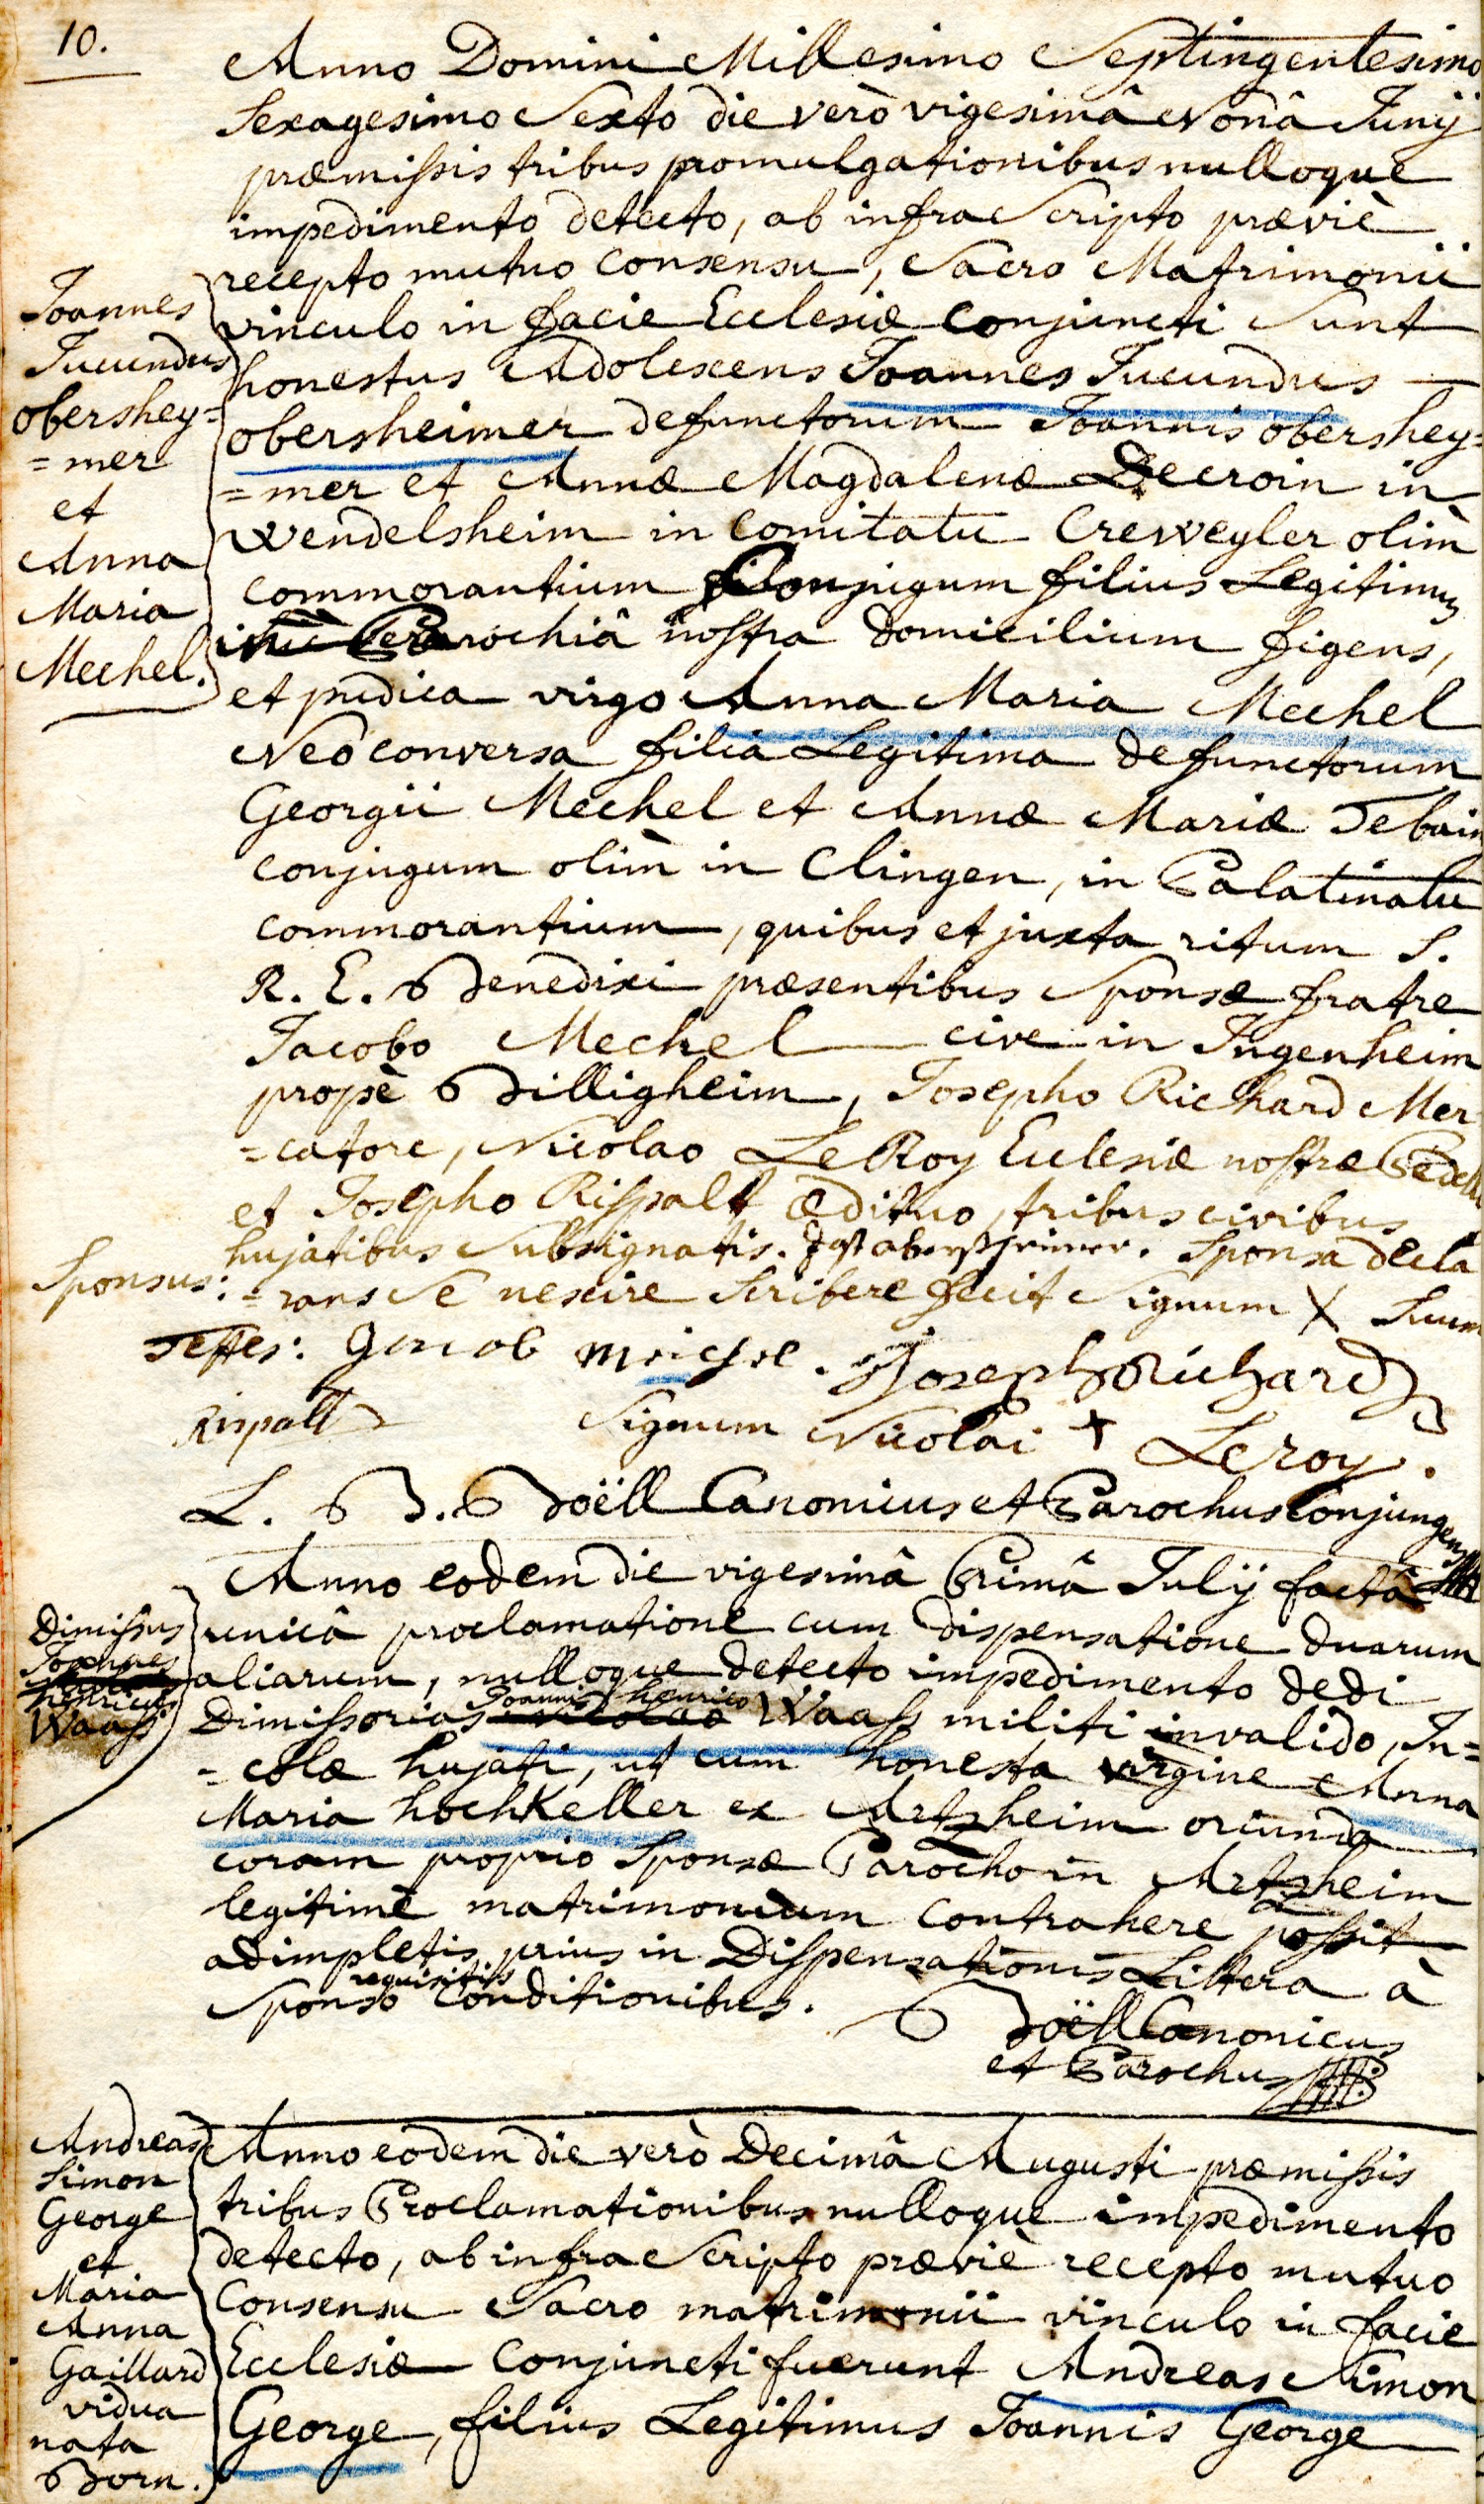 10.
Anno Domini Millesimo Septingentesimo
Sexagesimo Sexto die verò vigesimâ Nonâ Junij
præmissis tribus promulgationibus nulloque
impedimento detecto, ab infra Scripto præviè
recepto mutuo Consensu, Sacro Matrimonii
vinculo in facie Ecclesiæ Conjuncti Sunt
honestus Adolescens Joannes Jucundus
obersheimer defunctorum Joannis obershey=
=mer et Annæ Magdalenæ Decroin in
Wendelsheim in Comitatu Creweyler olim
Commorantium Conjugum filius Legitimus
Parochiâ nostra domicilium figens,
et pudica virgo Anna Maria Mechel
Neo conversa filia Legitima defunctorum
Georgii Mechel et Annæ Mariæ Tebain
Conjugum olim in Clingen, in Palatinatu
Commorantium, quibus et juxta ritum S.
R. E. Benedixi præsentibus Sponsæ fratre
Jacobo Mechel cive in Ingenheim
propè Billigheim, Josepho Richard Mer
=catore, Nicolao LeRoy Ecclesiæ nostræ Pedell
et Josepho Rispalt ædituo, tribus civibus
hujatibus Subsignatis. Jost obersheimer. Sponsa decla
=rans Se nescire Scribere fecit Signum X Suum
Joannes
Jucundus
obershey=
=mer
et
Anna
Maria
Mechel.
Sponsus:
Testes: Jacob . Joseph Richard
Rispalt Signum Nicolai + Leroy.
L. B. Boëll Canonicus et Parochus Conjungens
Anno eodem die vigesimâ Primâ Julij factâ
unicâ proclamatione cum dispensatione duarum
aliarum, nulloque detecto impedimento dedi
Joanni henrico
Dimissorias Nicolao Waass militi invalido, In=
=colæ hujati, ut cum honesta virgine Anna
Maria hochKeller ex Artzheim oriunda
coram proprio Sponsæ Parocho in Artzheim
legitimè matrimonium Contrahere possit
adimpletis prius in Dispensationis Littera à
requisitis
Sponso Conditionibus.
Boëll Canonicus
et Parochus
Dimissus
Joannes
henricus
Waass
Anno eodem die verò Decimâ Augusti præmissis
tribus Proclamationibus nulloque impedimento
detecto, ab infra Scripto præviè recepto mutuo
Consensu Sacro matrimonii vinculo in facie
Ecclesiæ Conjuncti fuerunt Andreas Simon
George, filius Legitimus Joannis George
Andreas
Simon
George
et
Maria
Anna
Gaillard
vidua
nata
Born.